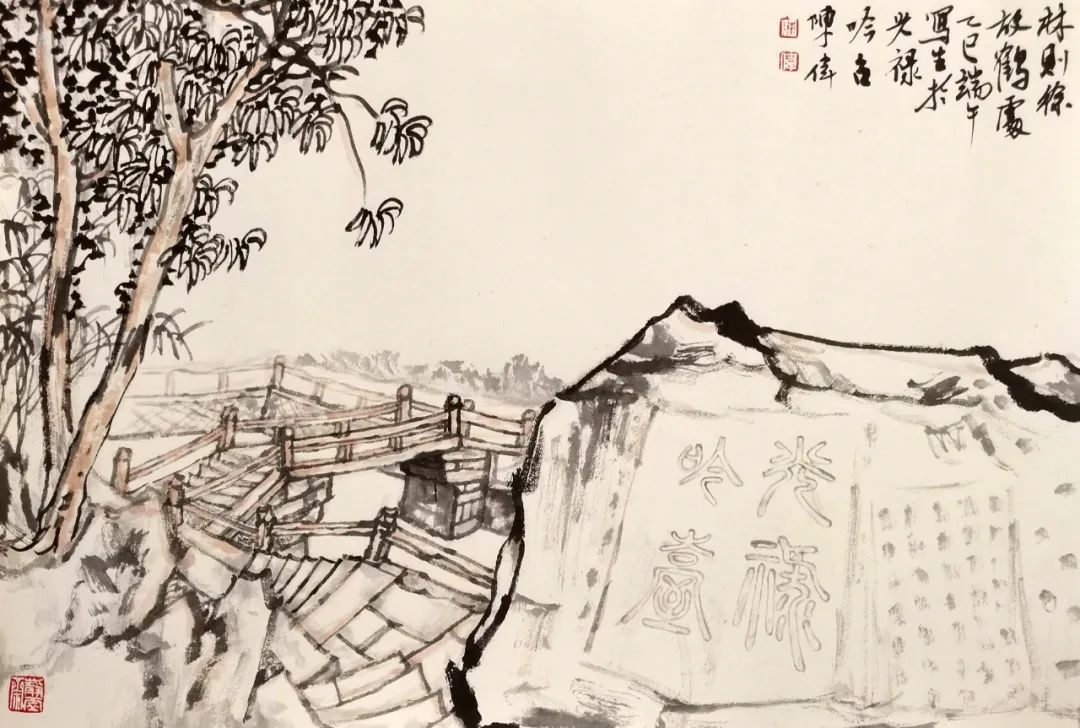 林則徐
放鶴處
乙巳端午
寫生於
光禄
吟台
陳偉
光禄
吟臺